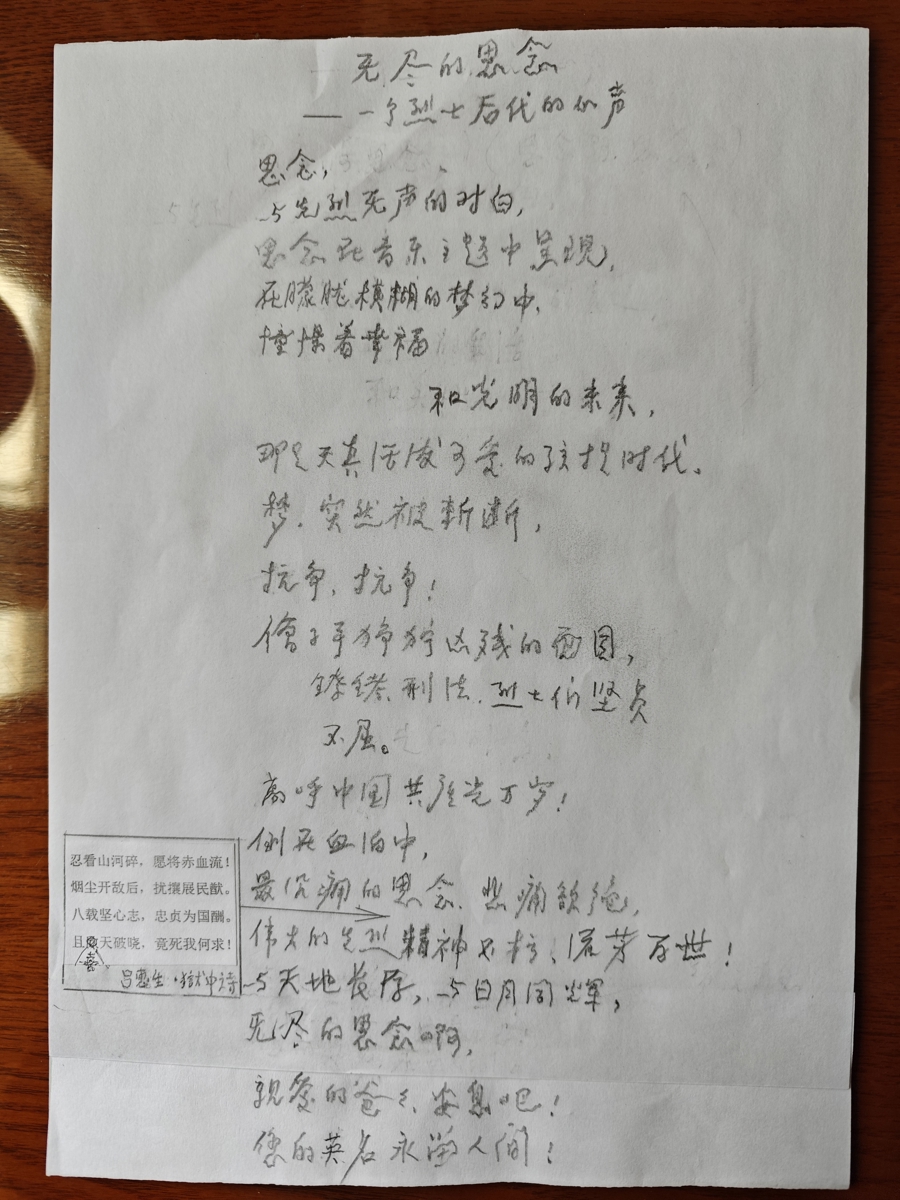 无尽的思念
——一个烈士后代的心声
思念，
与先烈无声的对白，
思念在音乐主题中呈现，
在朦胧模糊的梦幻中，
憧憬着幸福
和光明的未来，
那是天真活泼可爱的孩提时代、
梦，突然被斩断，
抗争，抗争！
侩子手狰狞凶残的面目，
镣铐、刑法，烈士们坚贞
不屈。
高呼中国共产党万岁！
倒在血泊中，
最沉痛的思念、悲痛欲绝，
忍看山河碎，愿将赤血流！
烟尘开敌后，扰攘展民猷。
八载坚心志，忠贞为国酬。
且喜天破晓，竟死我何求！
吕惠生·獄中诗
伟大的先烈精神不朽、流芳百世！
与天地长存，与日月同辉，
无尽的思念啊，
親爱的爸爸、安息吧！
您的英名永溜人间！